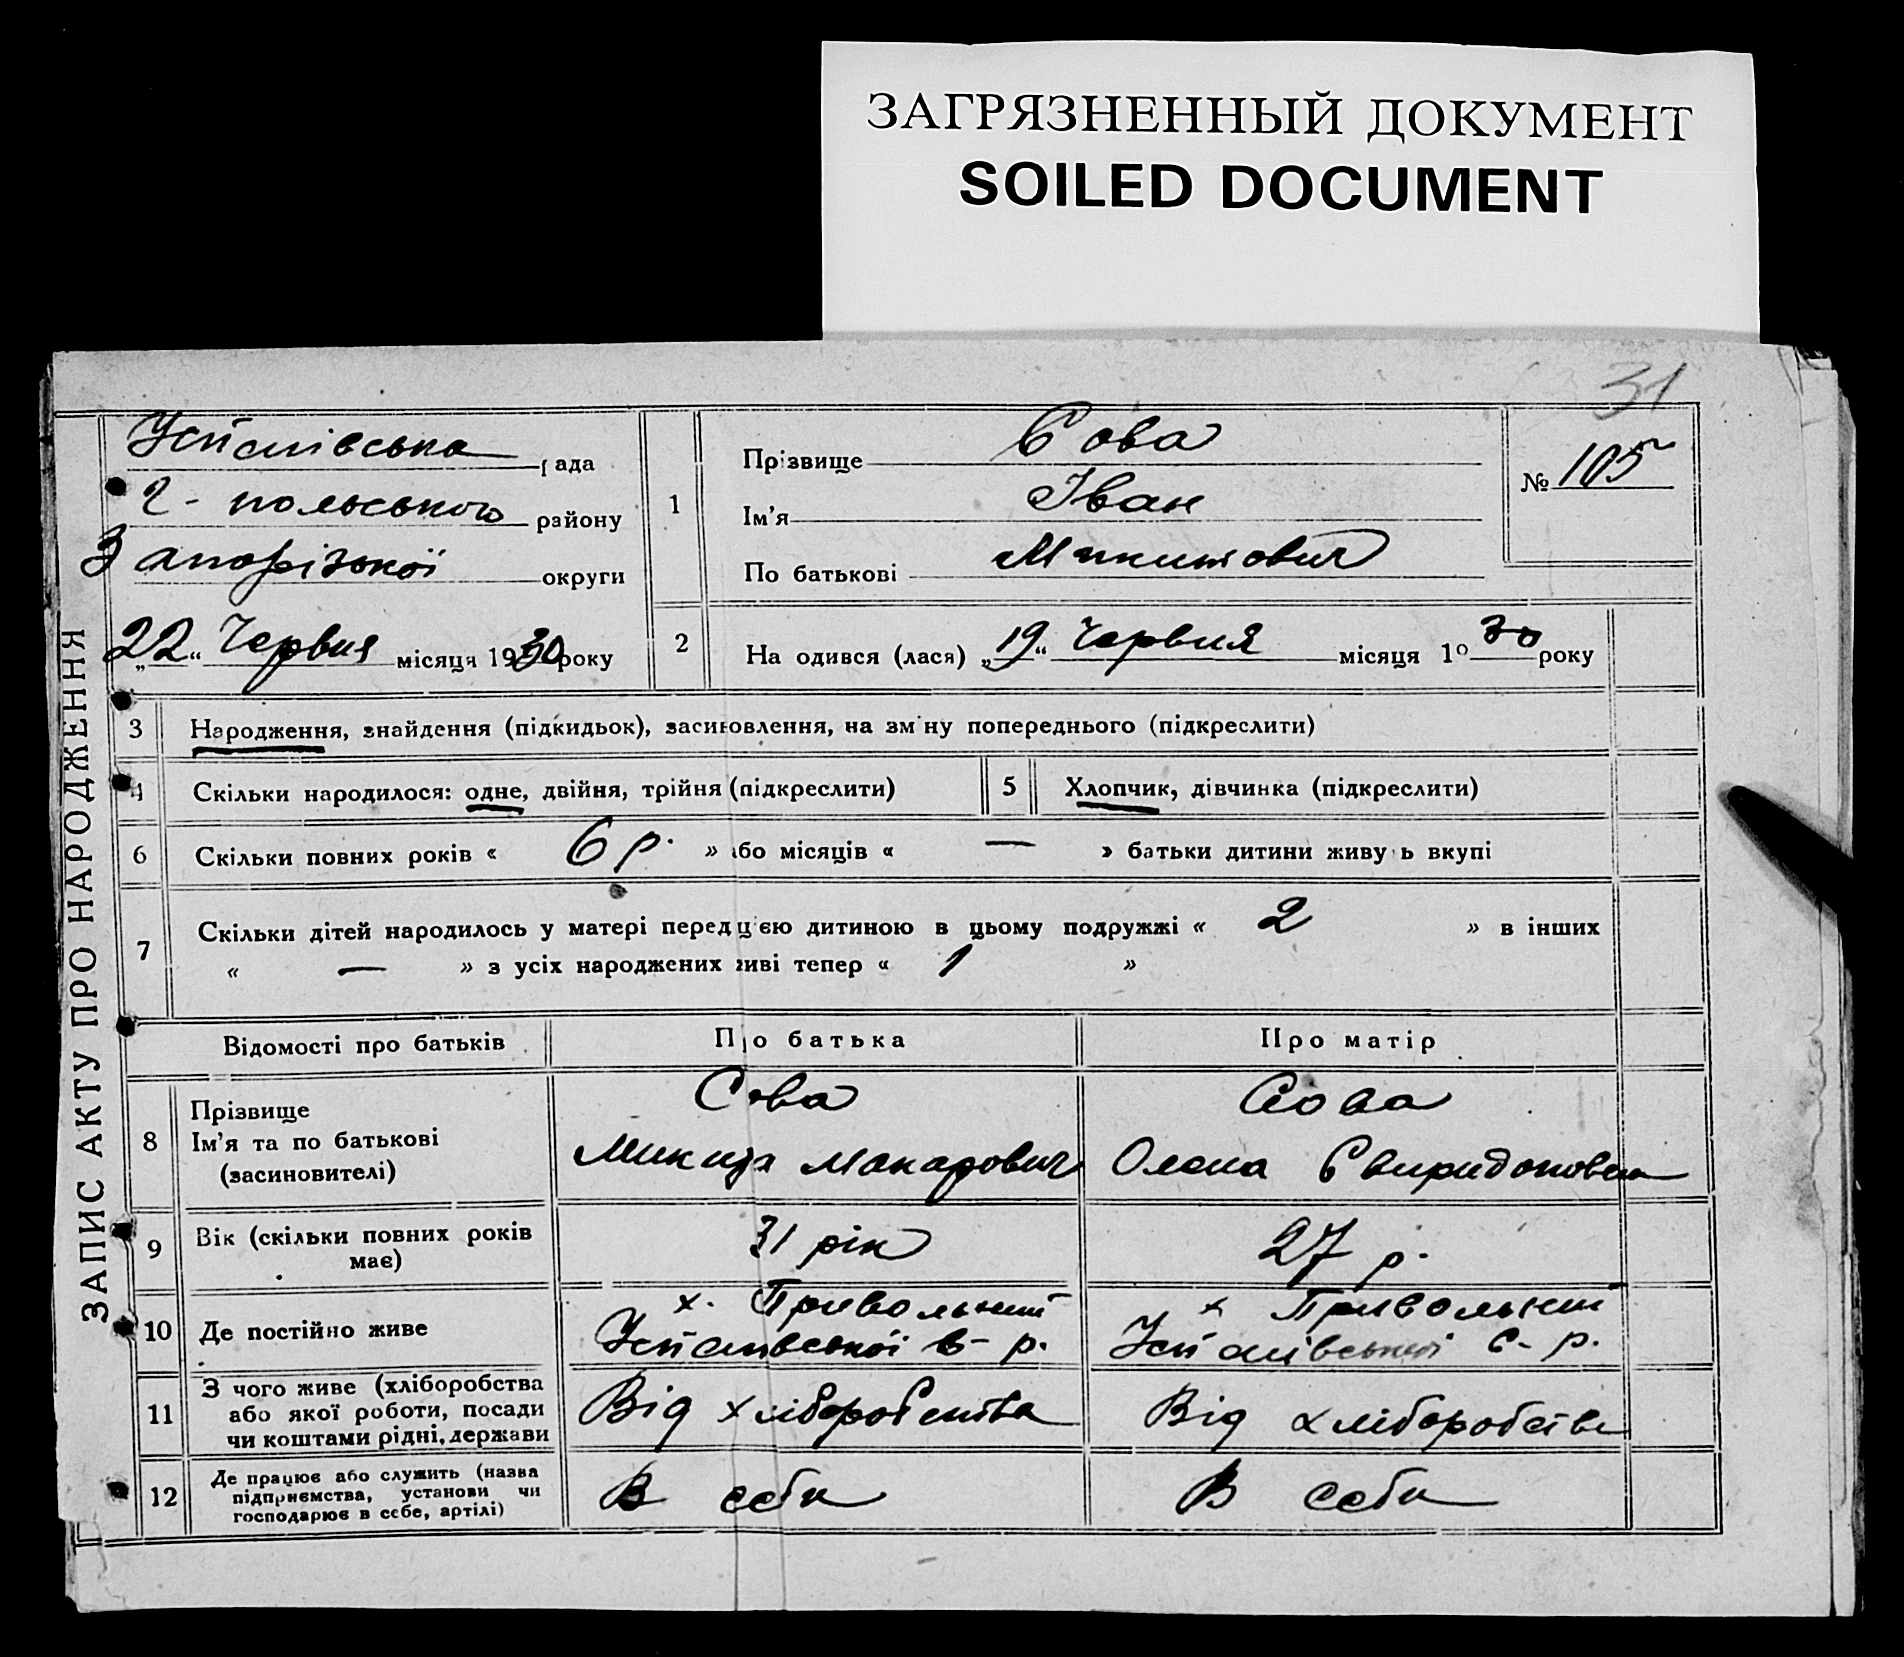 ЗАГРЯЗНЕННЫЙ ДОКУМЕНТ
SOILED DOCUMENT
31
ЗАПИС АКТУ ПРО НАРОДЖЕННЯ
рада
Г-польського району
Запорізької округи
„22“ Червня місяця 1930 року
1
Прізвище Сова
Ім'я Іван
По батькові Микитович
№ 105
2
На одився (лася) „19“ Червня місяця 1930 року
3 Народження, знайдення (підкидьок), засиновлення, на зміну попереднього (підкреслити)
4 Скільки народилося: одне, двійня, трійня (підкреслити)
5 Хлопчик, дівчинка (підкреслити)
6 Скільки повних років « 6 р. » або місяців « — » батьки дитини живуть вкупі
7 Скільки дітей народилось у матері перед цією дитиною в цьому подружжі « 2 » в інших
« — » з усіх народжених живі тепер « 1 »
Відомості про батьків Про батька Про матір
8 Прізвище Сова Сова
Ім'я та по батькові Микита Макарович Олена Свиридоновна
(засиновителі)
9 Вік (скільки повних років має) 31 рік 27 р.
10 Де постійно живе х. Привольний х Привольний
с-р. с-р.
11 З чого живе (хліборобства Від хліборобства Від хліборобства
або якої роботи, посади
чи коштами рідні, держави
12 Де працює або служить (назва В себе В себе
підприємства, установи чи
господарює в себе, артілі)